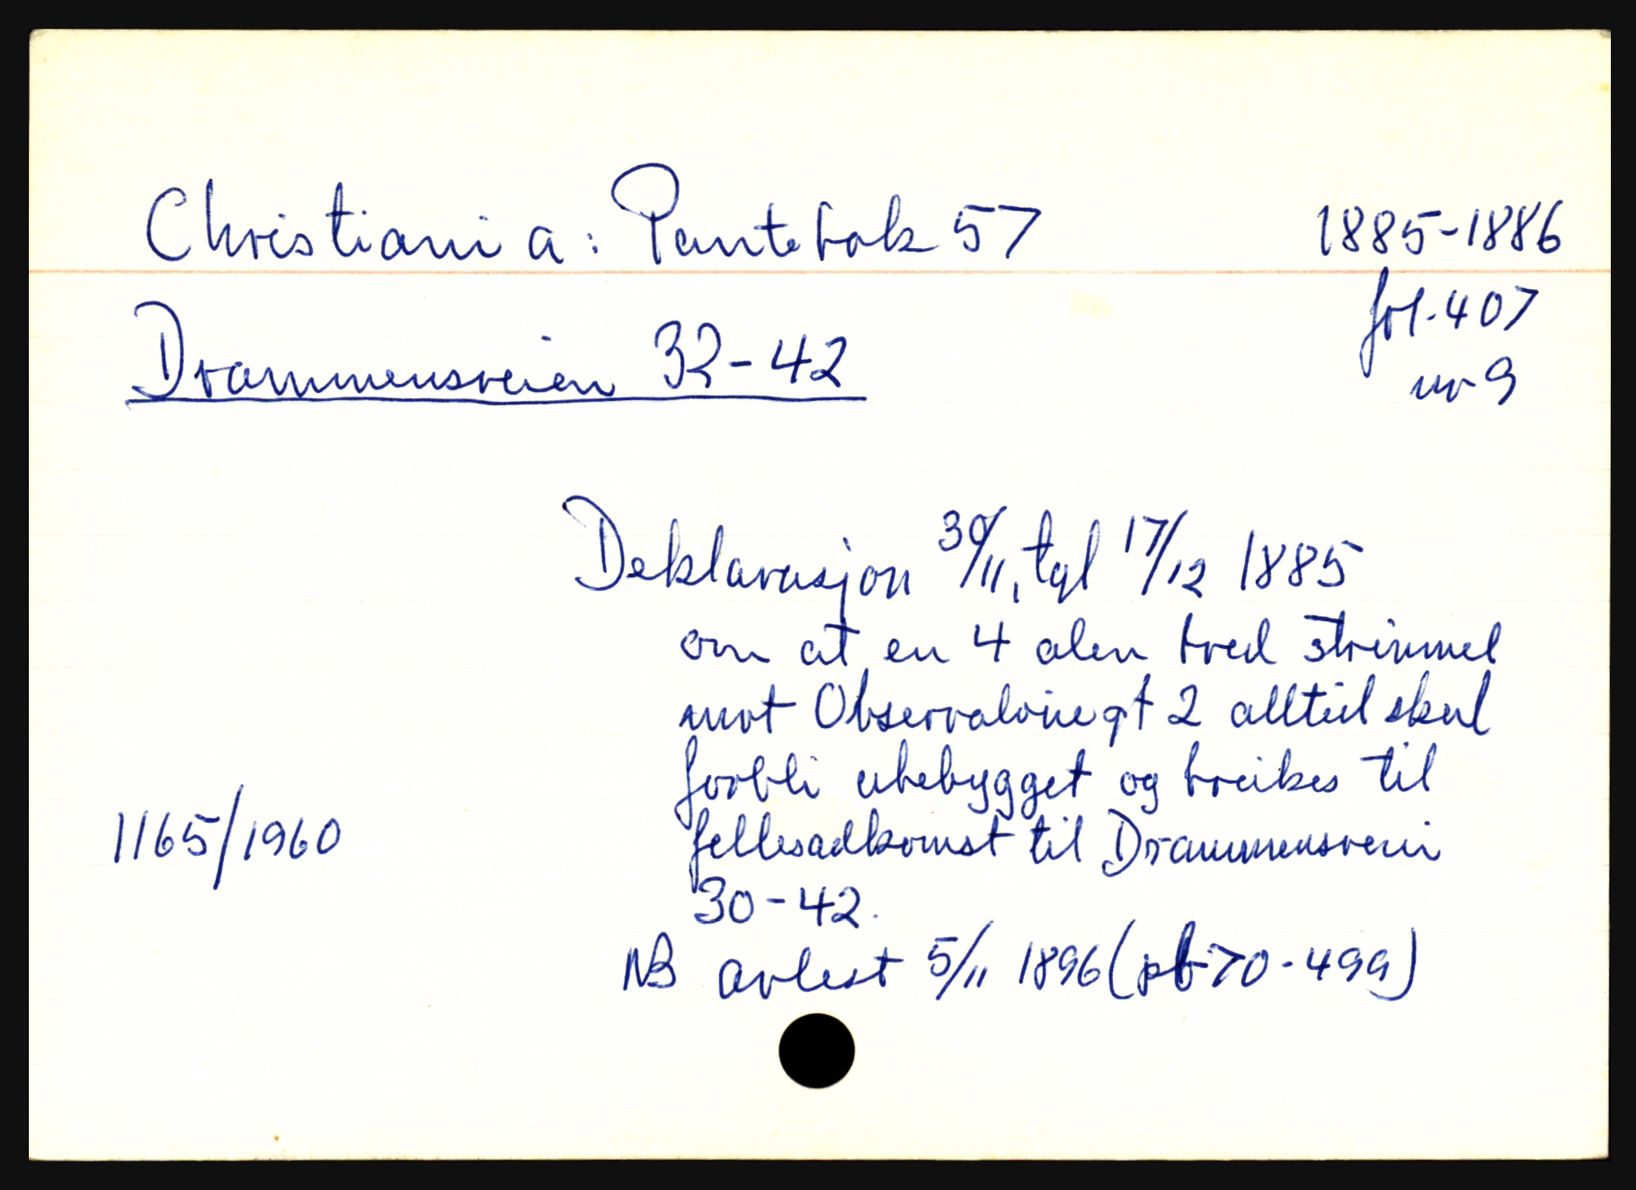 Christiania: Pantebok 57 1885-1886
fol. 407
Drammensveien 32-42
nr 9
Deklarasjon 30/11, tgl 17/12 1885
om at en 4 alen bred strimmel
mot Observatoriegt 2 alltid skal
forbli ubebygget og brukes til
1165/1960
fellesadkomst til Drammensveien
30-42.
NB avlest 5/11 1896 (pb 70-499)